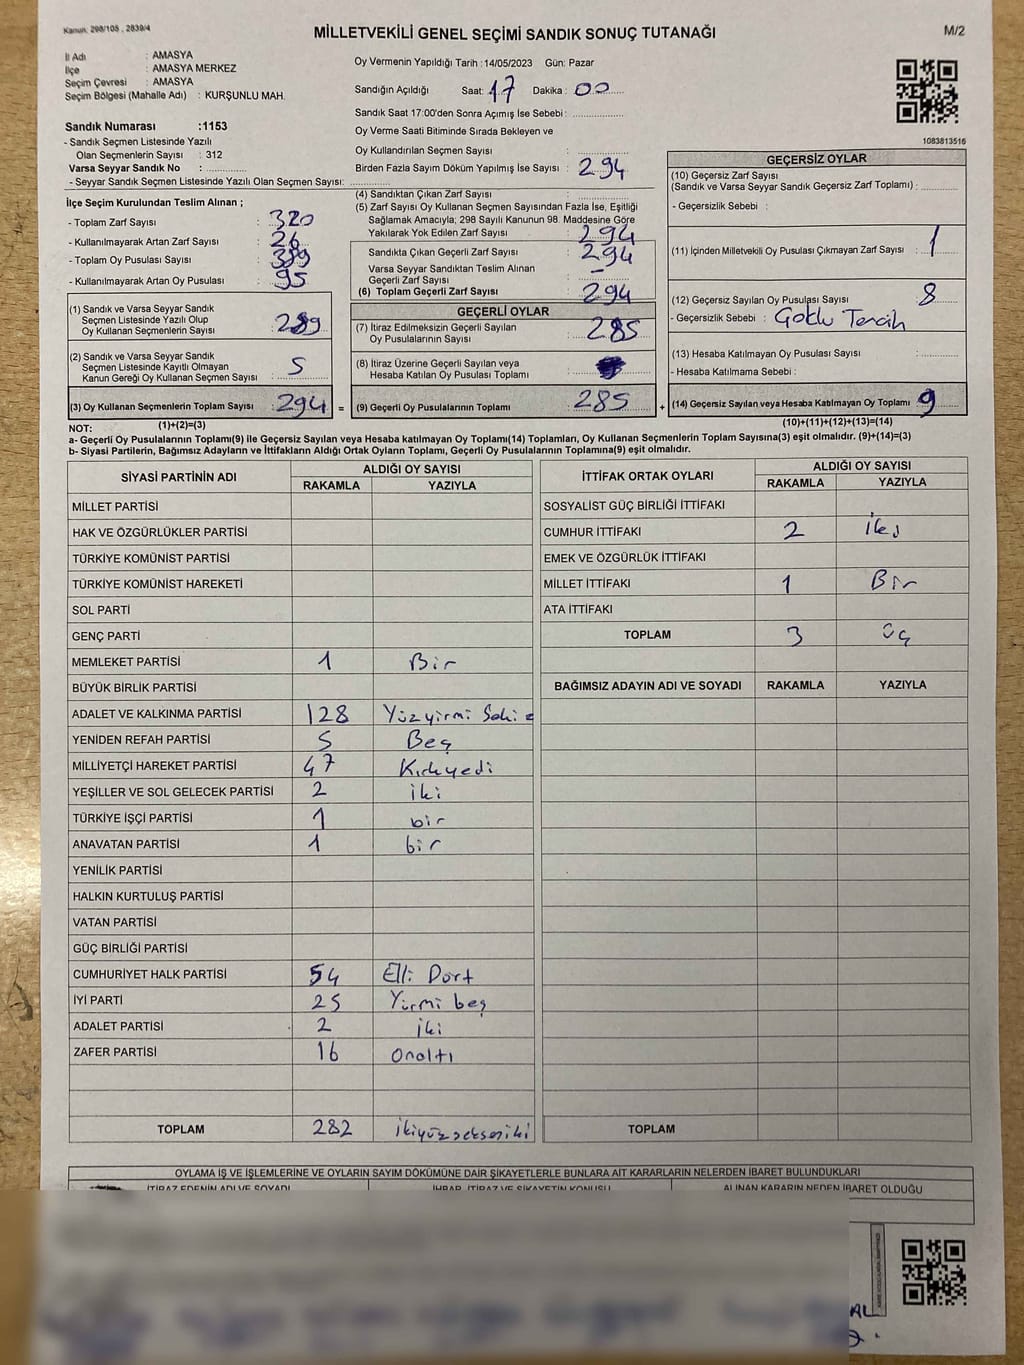 Kanun: 298/105 , 2839/4
MİLLETVEKİLİ GENEL SEÇİMİ SANDIK SONUÇ TUTANAĞI
M/2
İl Adı : AMASYA
İlçe : AMASYA MERKEZ
Seçim Çevresi : AMASYA
Seçim Bölgesi (Mahalle Adı) : KURŞUNLU MAH.
Sandık Numarası :1153
- Sandık Seçmen Listesinde Yazılı
Olan Seçmenlerin Sayısı : 312
Varsa Seyyar Sandık No : ............
- Seyyar Sandık Seçmen Listesinde Yazılı Olan Seçmen Sayısı: ............
İlçe Seçim Kurulundan Teslim Alınan ;
- Toplam Zarf Sayısı : 320
- Kullanılmayarak Artan Zarf Sayısı : 26
- Toplam Oy Pusulası Sayısı :
- Kullanılmayarak Artan Oy Pusulası : 95
(1) Sandık ve Varsa Seyyar Sandık
Seçmen Listesinde Yazılı Olup
Oy Kullanan Seçmenlerin Sayısı : 289
(2) Sandık ve Varsa Seyyar Sandık
Seçmen Listesinde Kayıtlı Olmayan
Kanun Gereği Oy Kullanan Seçmen Sayısı : 5
(3) Oy Kullanan Seçmenlerin Toplam Sayısı : 294 =
Oy Vermenin Yapıldığı Tarih :14/05/2023 Gün: Pazar
Sandığın Açıldığı Saat: 17 Dakika : 00
Sandık Saat 17:00'den Sonra Açımış İse Sebebi: ............
Oy Verme Saati Bitiminde Sırada Bekleyen ve
Oy Kullandırılan Seçmen Sayısı : ............
Birden Fazla Sayım Döküm Yapılmış İse Sayısı : 294
(4) Sandıktan Çıkan Zarf Sayısı : ............
(5) Zarf Sayısı Oy Kullanan Seçmen Sayısından Fazla İse, Eşitliği
Sağlamak Amacıyla; 298 Sayılı Kanunun 98. Maddesine Göre
Yakılarak Yok Edilen Zarf Sayısı : 294
Sandıkta Çıkan Geçerli Zarf Sayısı : 294
Varsa Seyyar Sandıktan Teslim Alınan
Geçerli Zarf Sayısı : –
(6) Toplam Geçerli Zarf Sayısı : 294
GEÇERLİ OYLAR
(7) İtiraz Edilmeksizin Geçerli Sayılan
Oy Pusulalarının Sayısı : 285
(8) İtiraz Üzerine Geçerli Sayılan veya
Hesaba Katılan Oy Pusulası Toplamı :
(9) Geçerli Oy Pusulalarının Toplamı : 285 +
1083813516
GEÇERSİZ OYLAR
(10) Geçersiz Zarf Sayısı
(Sandık ve Varsa Seyyar Sandık Geçersiz Zarf Toplamı) : ............
- Geçersizlik Sebebi :
(11) İçinden Milletvekili Oy Pusulası Çıkmayan Zarf Sayısı : 1
(12) Geçersiz Sayılan Oy Pusulası Sayısı : 8
- Geçersizlik Sebebi : Çoklu Tercih
(13) Hesaba Katılmayan Oy Pusulası Sayısı : ............
- Hesaba Katılmama Sebebi :
(14) Geçersiz Sayılan veya Hesaba Katılmayan Oy Toplamı : 9
NOT: (1)+(2)=(3) (10)+(11)+(12)+(13)=(14)
a- Geçerli Oy Pusulalarının Toplamı(9) ile Geçersiz Sayılan veya Hesaba katılmayan Oy Toplamı(14) Toplamları, Oy Kullanan Seçmenlerin Toplam Sayısına(3) eşit olmalıdır. (9)+(14)=(3)
b- Siyasi Partilerin, Bağımsız Adayların ve İttifakların Aldığı Ortak Oyların Toplamı, Geçerli Oy Pusulalarının Toplamına(9) eşit olmalıdır.
SİYASİ PARTİNİN ADI ALDIĞI OY SAYISI
RAKAMLA YAZIYLA
MİLLET PARTİSİ
HAK VE ÖZGÜRLÜKLER PARTİSİ
TÜRKİYE KOMÜNİST PARTİSİ
TÜRKİYE KOMÜNİST HAREKETİ
SOL PARTİ
GENÇ PARTİ
MEMLEKET PARTİSİ 1 Bir
BÜYÜK BİRLİK PARTİSİ
ADALET VE KALKINMA PARTİSİ 128 Yüzyirmi Sekiz
YENİDEN REFAH PARTİSİ 5 Beş
MİLLİYETÇİ HAREKET PARTİSİ 47 Kırkyedi
YEŞİLLER VE SOL GELECEK PARTİSİ 2 iki
TÜRKİYE İŞÇİ PARTİSİ 1 bir
ANAVATAN PARTİSİ 1 bir
YENİLİK PARTİSİ
HALKIN KURTULUŞ PARTİSİ
VATAN PARTİSİ
GÜÇ BİRLİĞİ PARTİSİ
CUMHURİYET HALK PARTİSİ 54 Elli Dört
İYİ PARTİ 25 Yirmi beş
ADALET PARTİSİ 2 iki
ZAFER PARTİSİ 16 Onaltı
TOPLAM 282 ikiyüzsekseniki
İTTİFAK ORTAK OYLARI ALDIĞI OY SAYISI
RAKAMLA YAZIYLA
SOSYALİST GÜÇ BİRLİĞİ İTTİFAKI
CUMHUR İTTİFAKI 2 iki
EMEK VE ÖZGÜRLÜK İTTİFAKI
MİLLET İTTİFAKI 1 Bir
ATA İTTİFAKI
TOPLAM 3 üç
BAĞIMSIZ ADAYIN ADI VE SOYADI RAKAMLA YAZIYLA
TOPLAM
OYLAMA İŞ VE İŞLEMLERİNE VE OYLARIN SAYIM DÖKÜMÜNE DAİR ŞİKAYETLERLE BUNLARA AİT KARARLARIN NELERDEN İBARET BULUNDUKLARI
İTİRAZ EDENİN ADI VE SOYADI İHBAR, İTİRAZ VE ŞİKAYETİN KONUSU ALINAN KARARIN NEDEN İBARET OLDUĞU